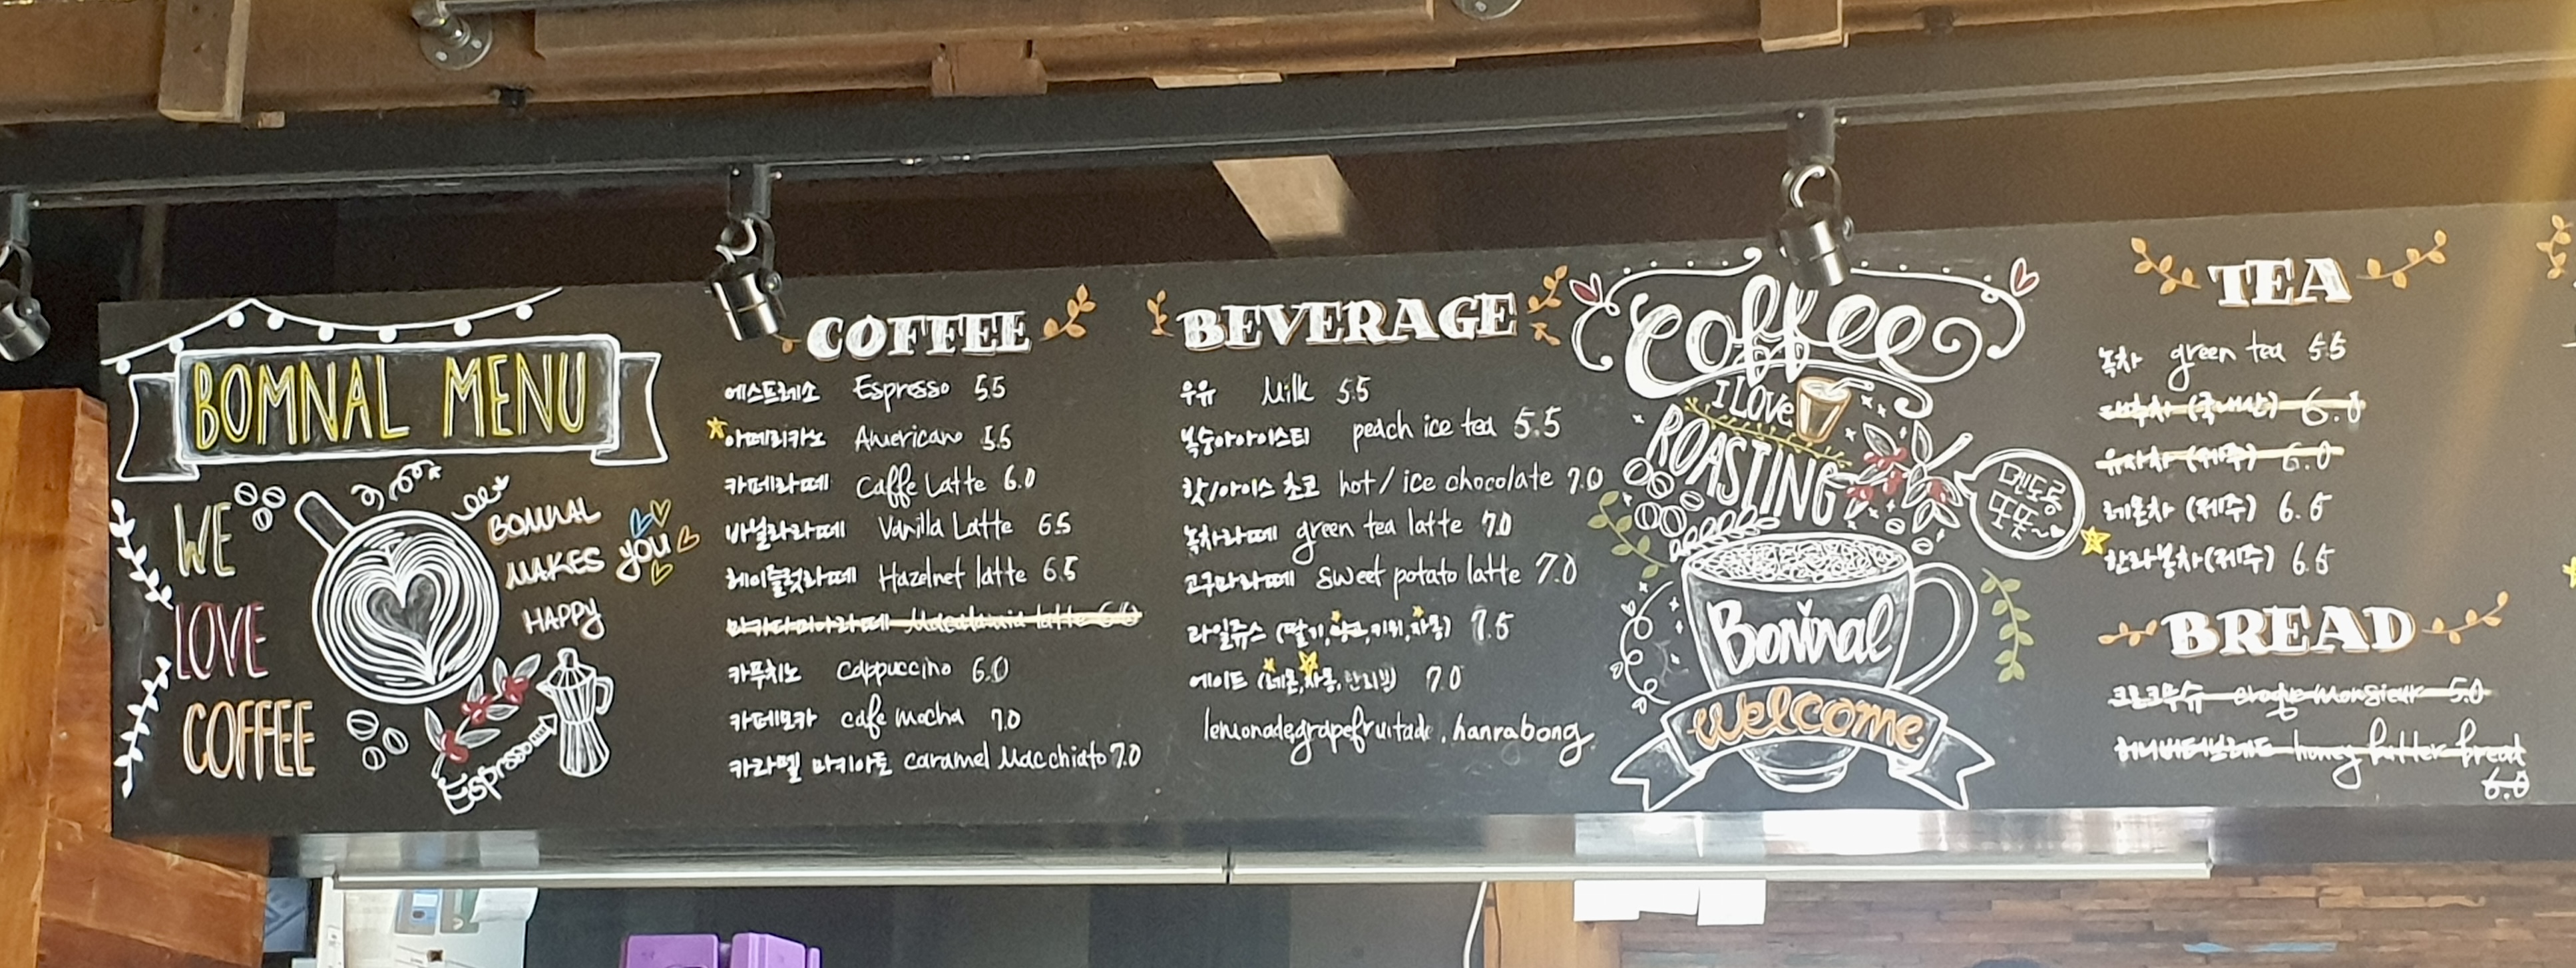 BOMNAL MENU
WE
LOVE
COFFEE
BOMNAL
MAKES you
HAPPY
Espresso
COFFEE
에스프레소 Espresso 5.5
아메리카노 Americano 5.5
카페라떼 Caffe Latte 6.0
바닐라라떼 Vanilla Latte 6.5
헤이즐럿라떼 Hazelnet latte 6.5
마카다미아라떼 Macadamia latte 6.0
카푸치노 Cappuccino 6.0
카페모카 cafe mocha 7.0
카라멜 마키아토 caramel Macchiato 7.0
BEVERAGE
우유 Milk 5.5
복숭아아이스티 peach ice tea 5.5
핫/아이스 초코 hot / ice chocolate 7.0
녹차라떼 green tea latte 7.0
고구마라떼 sweet potato latte 7.0
라일쥬스 (딸기, 키위, 자몽) 7.5
에이드 (레몬, 자몽, 한라봉) 7.0
lemonade, grapefruitade, hanrabong
coffee
I LOVE
ROASTING
멘도롱
또똣~
Bomnal
welcome
TEA
녹차 green tea 5.5
대추차 (국내산) 6.0
유자차 (제주) 6.0
레몬차 (제주) 6.5
한라봉차 (제주) 6.5
BREAD
크로크무슈 croque monsieur 5.0
허니버터브레드 honey butter bread
6.0